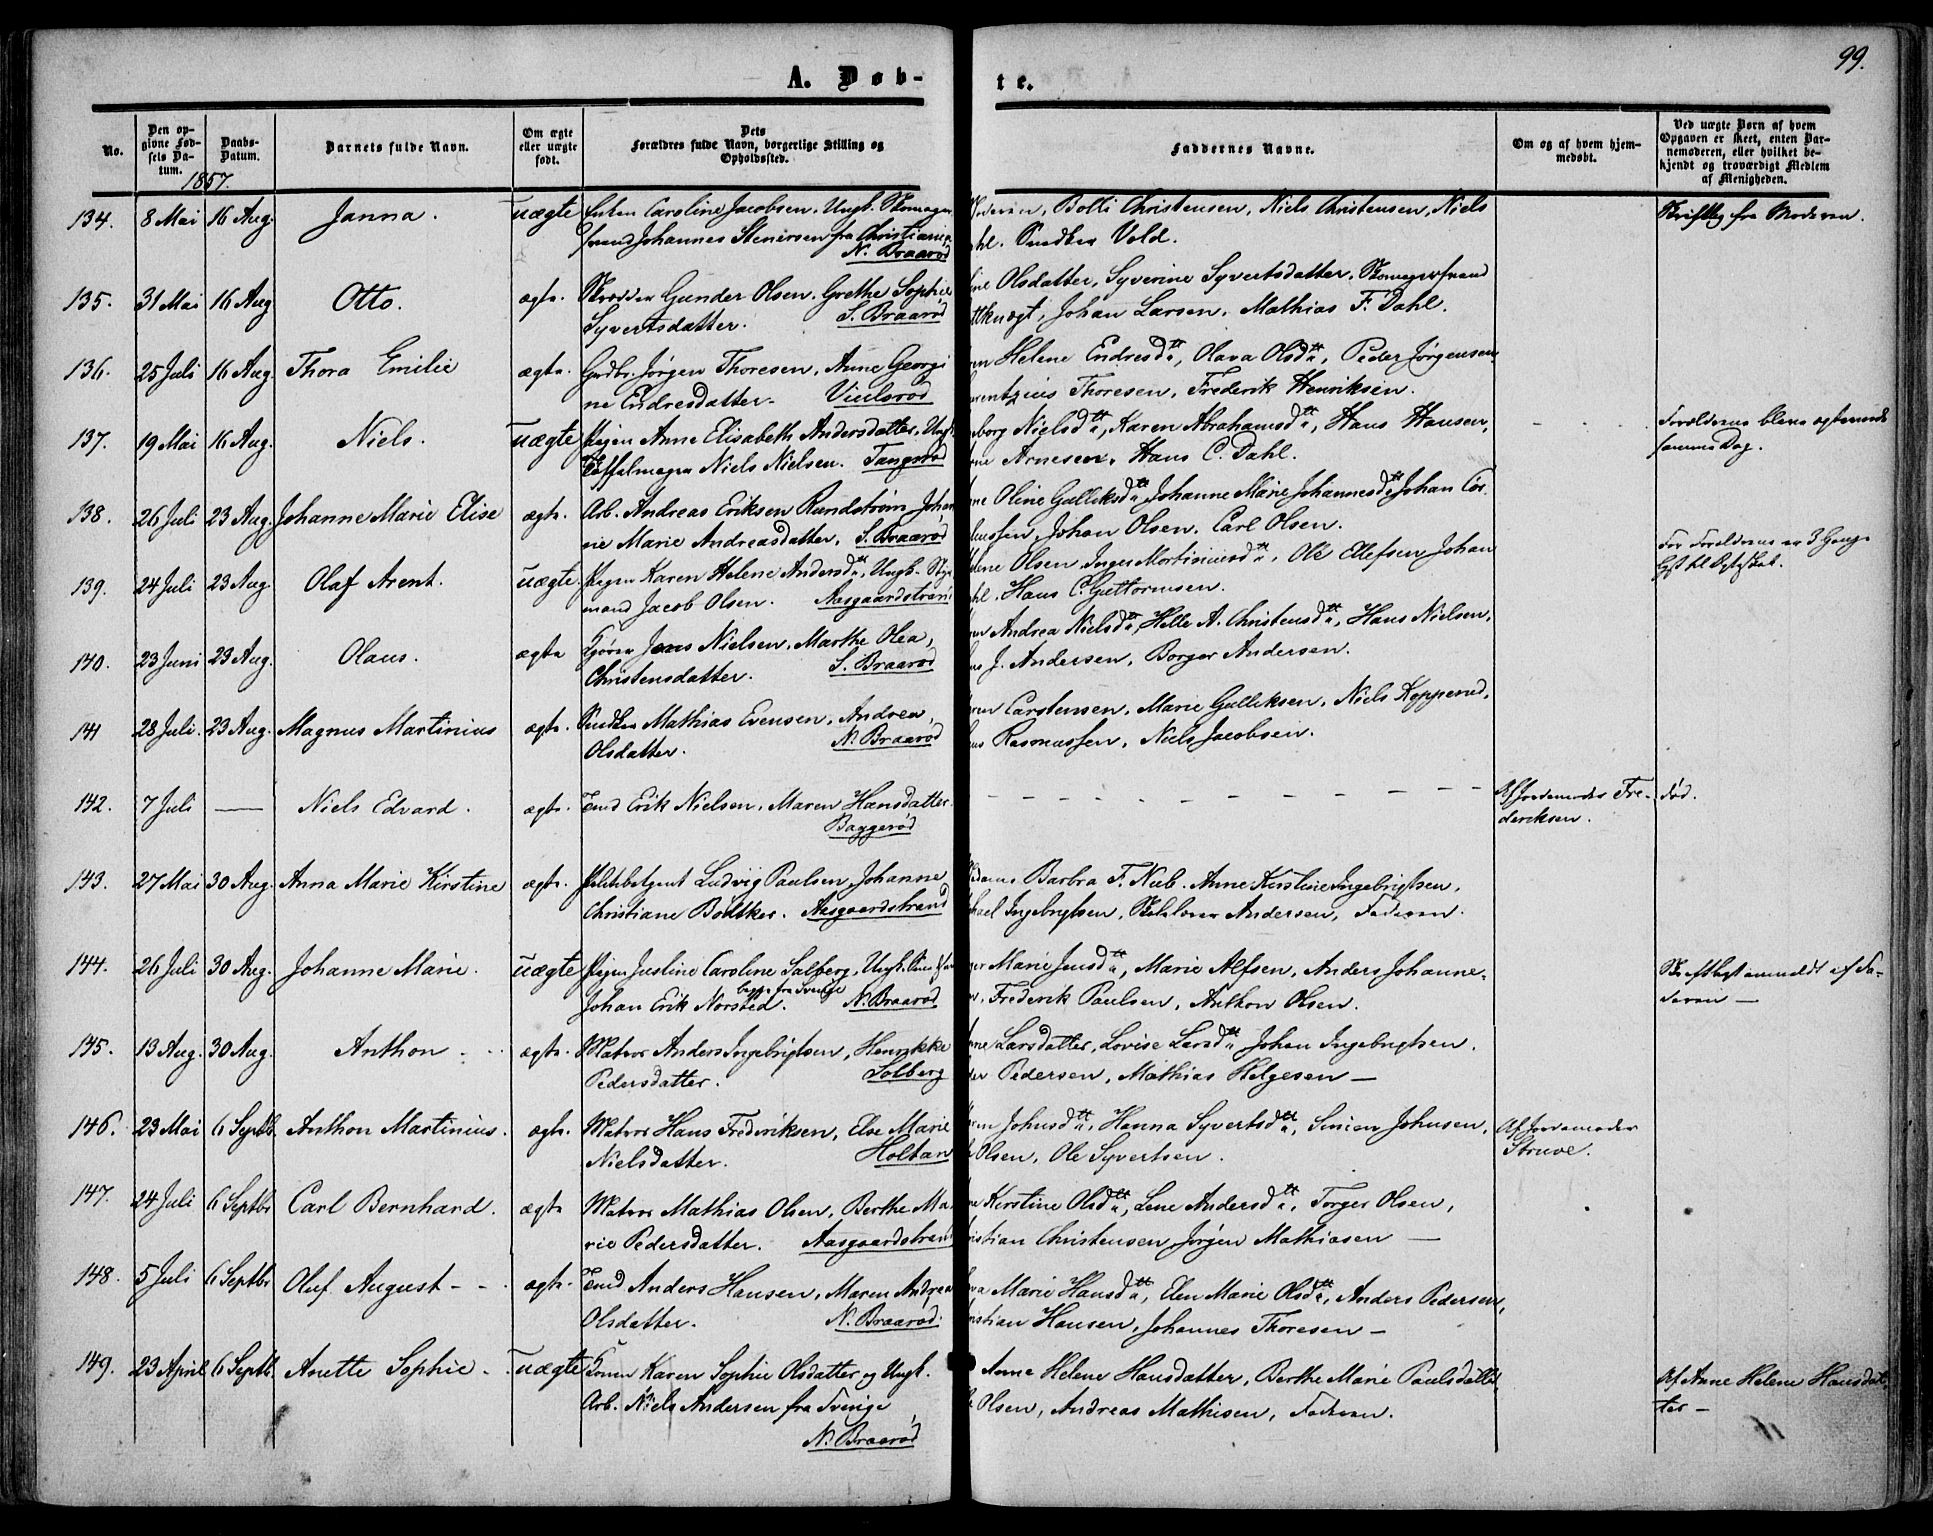 99.
A. Døb-
te.
No.
Den op-
givne Fød-
sels Da-
tum.
Daabs-
Datum.
Barnets fulde Navn.
Om ægte
eller uægte
født.
Dets
Forældres fulde Navn, borgerlige Stilling og
Opholdssted.
Faddernes Navne.
Om og af hvem hjem-
medøbt.
Ved uægte Børn af hvem
Opgaven er skeet, enten Bar-
nemoderen, eller hvilket be-
kjendt og troværdigt Medlem
af Menigheden.
1857.
134. 8 Mai 16 Aug. Janna. uægte Enken Caroline Jacobsen, Ungk. Skomager
svend Johannes Stenersen fra Christiania
N. Braarød
Bolli Christensen, Niels Christensen, Niels
Snedker Vold.
Skriftlig fra Moderen.
135. 31 Mai 16 Aug Otto. ægte. Skrædder Gunder Olsen, Grethe Sophie
Syvertsdatter. S. Braarød
Olsdatter, Syverine Syvertsdatter, Skomagersvend
Johan Larsen, Mathias F. Dahl.
136. 25 Juli 16 Aug. Thora Emilie ægte. Gdbr. Jørgen Thoresen, Anne Georgi
ne Endresdatter.
Helene Endresdtt, Olava Olsdtt, Peder Jørgensen
Thoresen, Frederik Henriksen.
137. 19 Mai 16 Aug. Niels. uægte Pigen Anne Elisabeth Andersdatter, Ungk.
Niels Nielsen. Tangsrød
Nielsdtt, Karen Abrahamsdtt, Hans Hansen,
Arnesen, Hans C. Dahl.
Forældrene bleve ægteviede
samme Dag.
138. 26 Juli 23 Aug. Johanne Marie Elise ægte. Arb. Andreas Eriksen Rundstrøm, Johan
ne Marie Andreasdatter. S. Braarød
Oline Gulliksdtt, Johanne Marie Johannesdtt, Johan Cor
Johan Olsen, Carl Olsen.
139. 24 Juli 23 Aug. Olaf Arent. uægte. Pigen Karen Helene Andersdtt, Ungk. Styr
mand Jacob Olsen. Aasgaardstrand
Olsen, Inger Mortiniusdtt, Ole Ellefsen, Johan
Hans C. Guttormsen.
For Forældrene er 3 Gange
lyst til Ægteskab.
140. 23 Juni 23 Aug. Olaus. ægte Kjører Jens Nielsen, Marthe Olea,
Christensdatter. S. Braarød
Andrea Nielsdtt, Helle A. Christensdtt, Hans Nielsen,
J. Andersen, Borger Andersen.
141 28 Juli. 23 Aug. Magnus Martinius ægte. Snedker Mathias Evensen, Andrea,
Olsdatter. N. Braarød
Carstensen, Marie Gulliksen, Niels Kopperud,
Rasmussen, Niels Jacobsen.
142. 7 Juli — Niels Edvard. ægte. Tmd Erik Nielsen, Maren Hansdatter.
Baggerød
Af Jordemoder Fre-
deriksen.
død.
143. 27 Mai 30 Aug. Anna Marie Kirstine ægte. Politibetjent Ludvig Paulsen, Johanne
Christiane Bødtker. Aasgaardstrand
Barbra F. Nub. Anne Kirstine Ingebrigtsen,
Ingebrigtsen, Skolelærer Andersen, Faderen.
144. 26 Juli 30 Aug. Johanne Marie. uægte Pigen Justine Caroline Salberg, Ungk.
Johan Erik Norsted. begge fra Sverige N. Braarød
Marie Jensdtt, Marie Alfsen, Anders Johanne-
Frederik Paulsen, Anthon Olsen.
Skriftligt anmeldt af Fa-
deren —
145. 13 Aug. 30 Aug. Anthon ægte. Matros Anders Ingebrigtsen, Henrikke
Pedersdatter. Solberg
Larsdatter, Lovise Larsdtt, Johan Ingebrigtsen.
Pedersen, Mathias Helgesen —
146. 23 Mai 6 Septb. Anthon Martinius. ægte. Matros Hans Frederiksen, Else Marie
Nielsdatter. Holtan
Johnsdtt, Hanna Syvertsdtt, Simen Johnsen,
Olsen, Ole Syvertsen.
Af Jordemoder
Struve.
147. 24 Juli 6 Septbr Carl Bernhard. ægte Matros Mathias Olsen, Berthe Ma
rie Pedersdatter. Aasgaardstrand
Kirstine Olsdtt, Lene Andersdtt, Torger Olsen,
Christensen, Jørgen Mathiasen —
148. 5 Juli 6 Septbr Oluf August — ægte. Tmd Anders Hansen, Maren Andrea
Olsdatter. N. Braarød.
Marie Hansdtt, Elen Marie Olsdtt, Anders Pedersen,
Hansen, Johannes Thoresen —
149. 23 April 6 Septb. Anette Sophie uægte Karen Sophie Olsdatter og Ungk.
Arb. Niels Andersen fra Sverige
N. Braarød
Anne Helene Hansdatter, Berthe Marie Paulsdatter
Olsen, Andreas Mathisen, Faderen.
Af Anne Helene Hansdat
ter —